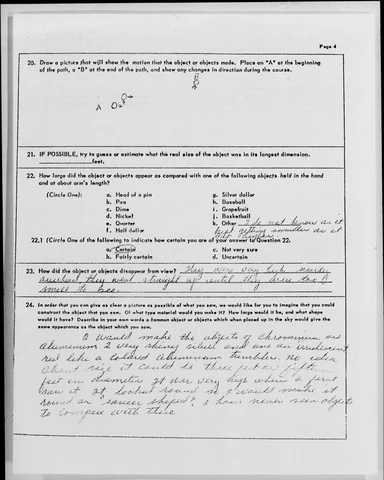 Page 4
20. Draw a picture that will show the motion that the object or objects made. Place an "A" at the beginning
of the path, a "B" at the end of the path, and show any changes in direction during the course.
A
21. IF POSSIBLE, try to guess or estimate what the real size of the object was in its longest dimension.
feet.
22. How large did the object or objects appear as compared with one of the following objects held in the hand
and at about arm's length?
(Circle One): a. Head of a pin g. Silver dollar
b. Pea h. Baseball
c. Dime i. Grapefruit
d. Nickel j. Basketball
e. Quarter k. Other I do not know as it
f. Half dollar kept getting smaller as it
got higher
22.1 (Circle One of the following to indicate how certain you are of your answer to Question 22.
a. Certain c. Not very sure
b. Fairly certain d. Uncertain
23. How did the object or objects disappear from view? They were very high nearly
overhead they went straight up until they were too
small to see.
24. In order that you can give as clear a picture as possible of what you saw, we would like for you to imagine that you could
construct the object that you saw. Of what type material would you make it? How large would it be, and what shape
would it have? Describe in your own words a common object or objects which when placed up in the sky would give the
same appearance as the object which you saw.
I would make the objects of chrominium or
aluminum 2 very shiny silver and one an irridescent
red like a colored aluminum tumbler. No idea
about size it could be three feet or fifteen
feet in diameter It was very high when I first
saw it It looked round so I would make it
round or "saucer shaped". I have never seen objects
to compare with these